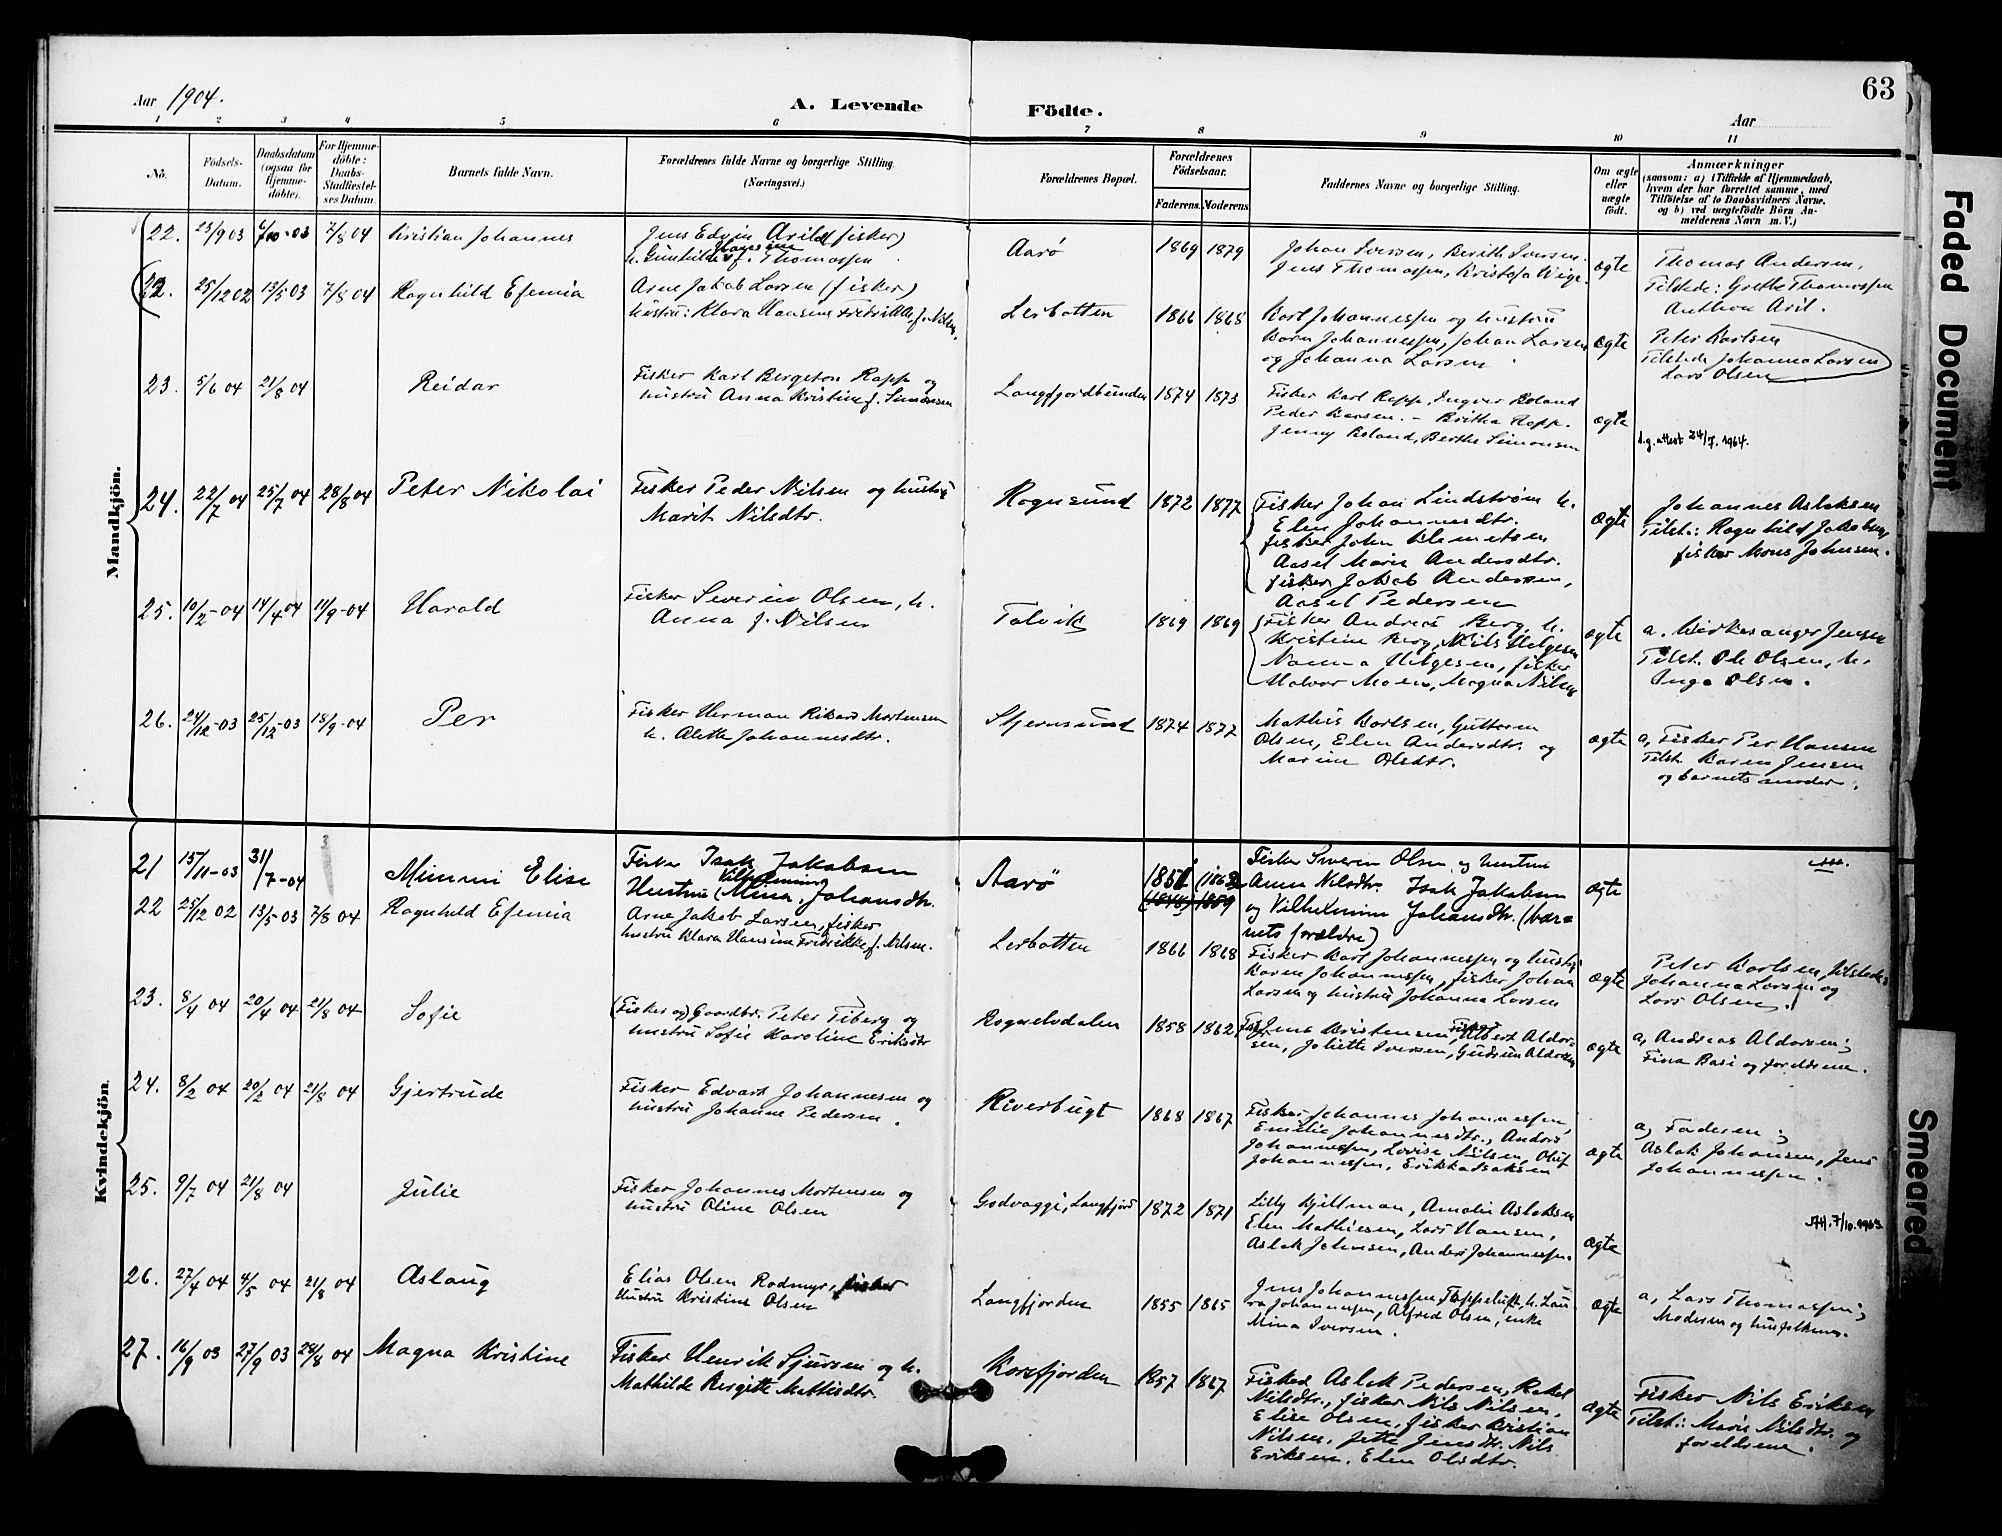 63
Aar 1904.
A. Levende Födte.
Aar
1 2 3 4 5 6 7 8 9 10 11
No.
Födsels-Datum.
Daabsdatum (ogsaa for Hjemme-döbte).
For Hjemme-döbte: Daabs-Stadfæstel-ses Datum.
Barnets fulde Navn.
Forældrenes fulde Navne og borgerlige Stilling. (Næringsvei.)
Forældrenes Bopæl.
Forældrenes Födselsaar.
Faderens. Moderens.
Faddernes Navne og borgerlige Stilling.
Om ægte eller uægte födt.
Anmærkninger
(saasom: a) i Tilfælde af Hjemmedaab,
hvem der har forrettet samme, med
Tilföielse af to Daabsvidners Navne,
og b) ved uægtefödte Börn An-
melderens Navn m. V.)
Mandkjön.
22. 23/9 03 4/10-03 7/8 04 Kristian Johannes
Jens Edvin Arild (fisker)
h. Gunhilde Hansine f. Thomassen
Aarø 1869 1879
Johan Iversen, Berith Iversen
Jens Thomassen, Kristofa Wige.
ægte
Thomas Andersen,
Tilstede: Grethe Thomassen
Anthon Aril.
25/12 02 13/5 03 7/8 04 Ragnhild Efemia
Arne Jakob Larsen (fisker)
hustru: Klara Hansine Fredrikke f. Nilsen.
Lerbotten 1866 1868
Karl Johannessen og hustru
Karen Johannessen, Johan Larsen
og Johanna Larsen
ægte
Peter Karlsen
Tilstede Johanna Larsen
Lars Olsen
23. 5/6 04 21/8 04 Reidar
Fisker Karl Bergeton Rapp og
hustru Anna Kristine f. Simonsen
Langfjordbunden 1874 1873
Fisker Karl Rapp, Ingver Boland
Peder Hansen. - Britha Rapp.
Jenny Boland, Berthe Simonsen
ægte
d.g. attest 24/7. 1964.
24. 22/7 04 25/7 04 28/8 04 Peter Nikolai
Fisker Peder Nilsen og hustru
Marit Nilsdtr.
Rognsund 1872 1877
Fisker Johan Lindstrøm h.
Elen Johannesdtr.
fisker John Klemetsen
Aasel Marie Andersdtr.
fisker Jakob Andersen,
Aasel Pedersen
ægte
Johannes Aslaksen
Tilst.: Ragnhild Jakobsen,
fisker Mons Johnsen.
25. 10/2-04 14/4 04 11/9-04 Harald
Fisker Severin Olsen, h.
Anna f. Nilsen
Talvik 1869 1869
Fisker Andreas Berg, h.
Kristine Berg, Nils Helgesen
Nanna Helgesen, fisker
Halvor Moen, Magna Nilsen
ægte
a. Kirkesanger Jensen
Tilst. Ole Olsen, h.
Inga Olsen.
26. 24/12-03 25/12-03 18/9-04 Per
Fisker Herman Rikard Mortensen
h. Alette Johannesdtr.
Stjernsund 1874 1877
Mathis Karlsen, Guttorm
Olsen, Elen Andersdtr. og
Marine Olsdtr.
ægte
a, Fisker Per Hansen
Tilst. Karen Jensen
og barnets moder.
Kvindekjön.
21 15/11-03 31/7-04 Mimmi Elise
Fisker Isak Jakobsen
Hustru (Mina) Vilhelmine Johansdtr.
Aarø 1851 (1862
(1848) 1859
Fisker Severin Olsen og hustru
Anna Nilsdtr. Isak Jakobsen
og Vilhelmine Johansdtr. (bar-
nets forældre)
ægte
22 25/12 02 13/5-03 7/8 04 Ragnhild Efemia
Arne Jakob Larsen, fisker
hustru Klara Hansine Fredrikke f. Nilsen.
Lerbotten 1866 1868
Fisker Karl Johannessen og hustru
Karen Johannessen, fisker Johan
Larsen og hustru Johanna Larsen
ægte
Peter Karlsen, tilstede:
Johanna Larsen og
Lars Olsen.
23. 8/4 04 20/4 04 21/8 04 Sofie
(Fisker og) Gaardbr. Peter Tiberg og
hustru Sofie Karoline Eriksdtr
Rognelvdalen 1858 1862
Jens Kristensen, Fisker Albert Aldor-
sen, Joliette Iversen, Gudrun Aldorsen
ægte
a, Andreas Aldorsen;
Fina Basi og foreldrene.
24. 8/2 04 20/2 04 21/8 04 Gjertrude
Fisker Edvart Johannesen og
hustru Johanne Pedersen.
Riverbugt 1868 1867
Fisker Johannes Johannessen,
Emilie Johannesdtr., Anders
Johannessen, Lovise Nilsen, Oluf
Johannessen, Erikka Isaksen
ægte
a, Faderen;
Aslak Johansen, Jens
Johannessen.
25. 9/7 04 21/8 04 Julie
Fisker Johannes Mortensen og
hustru Oline Olsen
Godvaggi, Langfjord 1872 1871
Lilly Kjellman, Amalie Aslaksen
Elen Mathiesen, Lars Hansen,
Aslak Johnsen, Anders Johannessen.
ægte
AH. 7/10. 1963.
26. 27/4 04 4/5 04 21/8 04 Aslaug
Elias Olsen Rodmyr, fisker
Hustru Kristine Olsen
Langfjorden 1855 1865
Jens Johannessen, Tappeluft, h. Lau-
ra Johannessen, Alfred Olsen, enke
Mina Iversen.
ægte
a, Lars Thomassen;
Moderen og husfolkene.
27. 16/9 03 27/9 03 28/8 04 Magna Kristine
Fisker Henrik Sjursen og h.
Mathilde Birgitte Mathisdtr.
Korsfjorden 1857 1867
Fisker Aslak Pedersen, Rakel
Nilsdtr., fisker Nils Nilsen,
Elise Olsen, fisker Kristian
Nilsen, Jette Jensdtr. Nils
Eriksen, Elen Olsdtr.
ægte
Fisker Nils Eriksen
Tilst.: Marie Nilsdtr. og
foreldrene.
Faded Document
Smeared